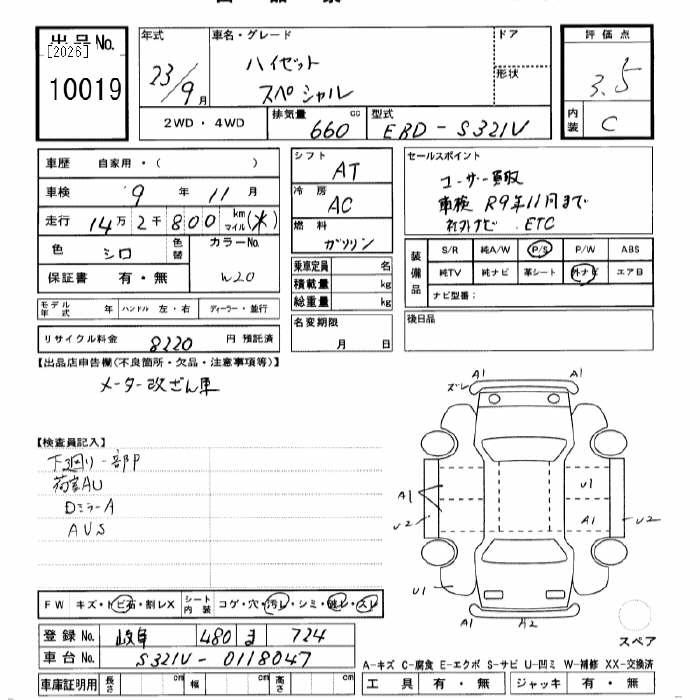 出品No.
[2026]
10019
年式
23/9月
車名・グレード
ハイゼット
スペシャル
ドア
形状
評価点
3.5
内装
C
2WD・4WD
排気量
660 cc
型式
EBD-S321V
車歴 自家用・( )
車検 9年 11月
走行 14万2千800 km マイル(水)
色 シロ 色替 カラーNo.
W20
保証書 有・無
モデル年式 年 ハンドル 左・右 ディーラー・並行
リサイクル料金 8220 円 預託済
シフト
AT
冷房
AC
燃料
ガソリン
乗車定員 名
積載量 kg
総重量 kg
名変期限
月 日
セールスポイント
ユーザー買取
車検 R9年11月まで
社外ナビ. ETC
装備品
S/R 純A/W P/S P/W ABS
純TV 純ナビ 革シート 外ナビ エアB
ナビ型番:
後日品
【出品店申告欄(不良箇所・欠品・注意事項等)】
メーター改ざん車
【検査員記入】
下廻り一部P
荷室AU
DミラーA
AVS
A1
A1
ズレ
A1
U2
U1
A1
U2
U1
A1
A2
スペア
FW キズ・トビ石・割レX シート内装 コゲ・穴・汚レ・シミ・破レ・スレ
登録No. 岐阜 480 ま 724
車台No. S321V-0118047
車庫証明用 長さ cm 幅 cm 高さ cm
A-キズ C-腐食 E-エクボ S-サビ U-凹ミ W-補修 XX-交換済
工具 有・無 ジャッキ 有・無